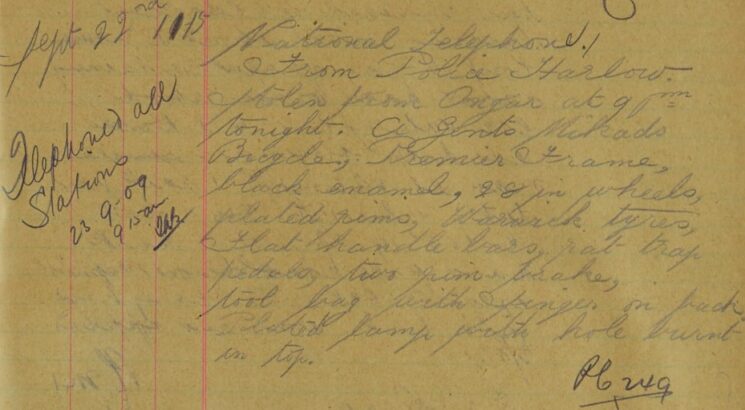 Sept 22nd 11 15
National Telephone.
From Police Harlow.
Stolen from Ongar at 9 pm
tonight. A Gents Mikado
Bicycle, Premier Frame,
black enamel, 28 in wheels,
plated rims, Warwick tyres,
Flat handle bars, rat trap
pedals, two rim brake,
tool bag with Singer on back,
Plated lamp with hole burnt
in top.
PC 249
Telephoned all
Stations
23-9-09
9 15 am